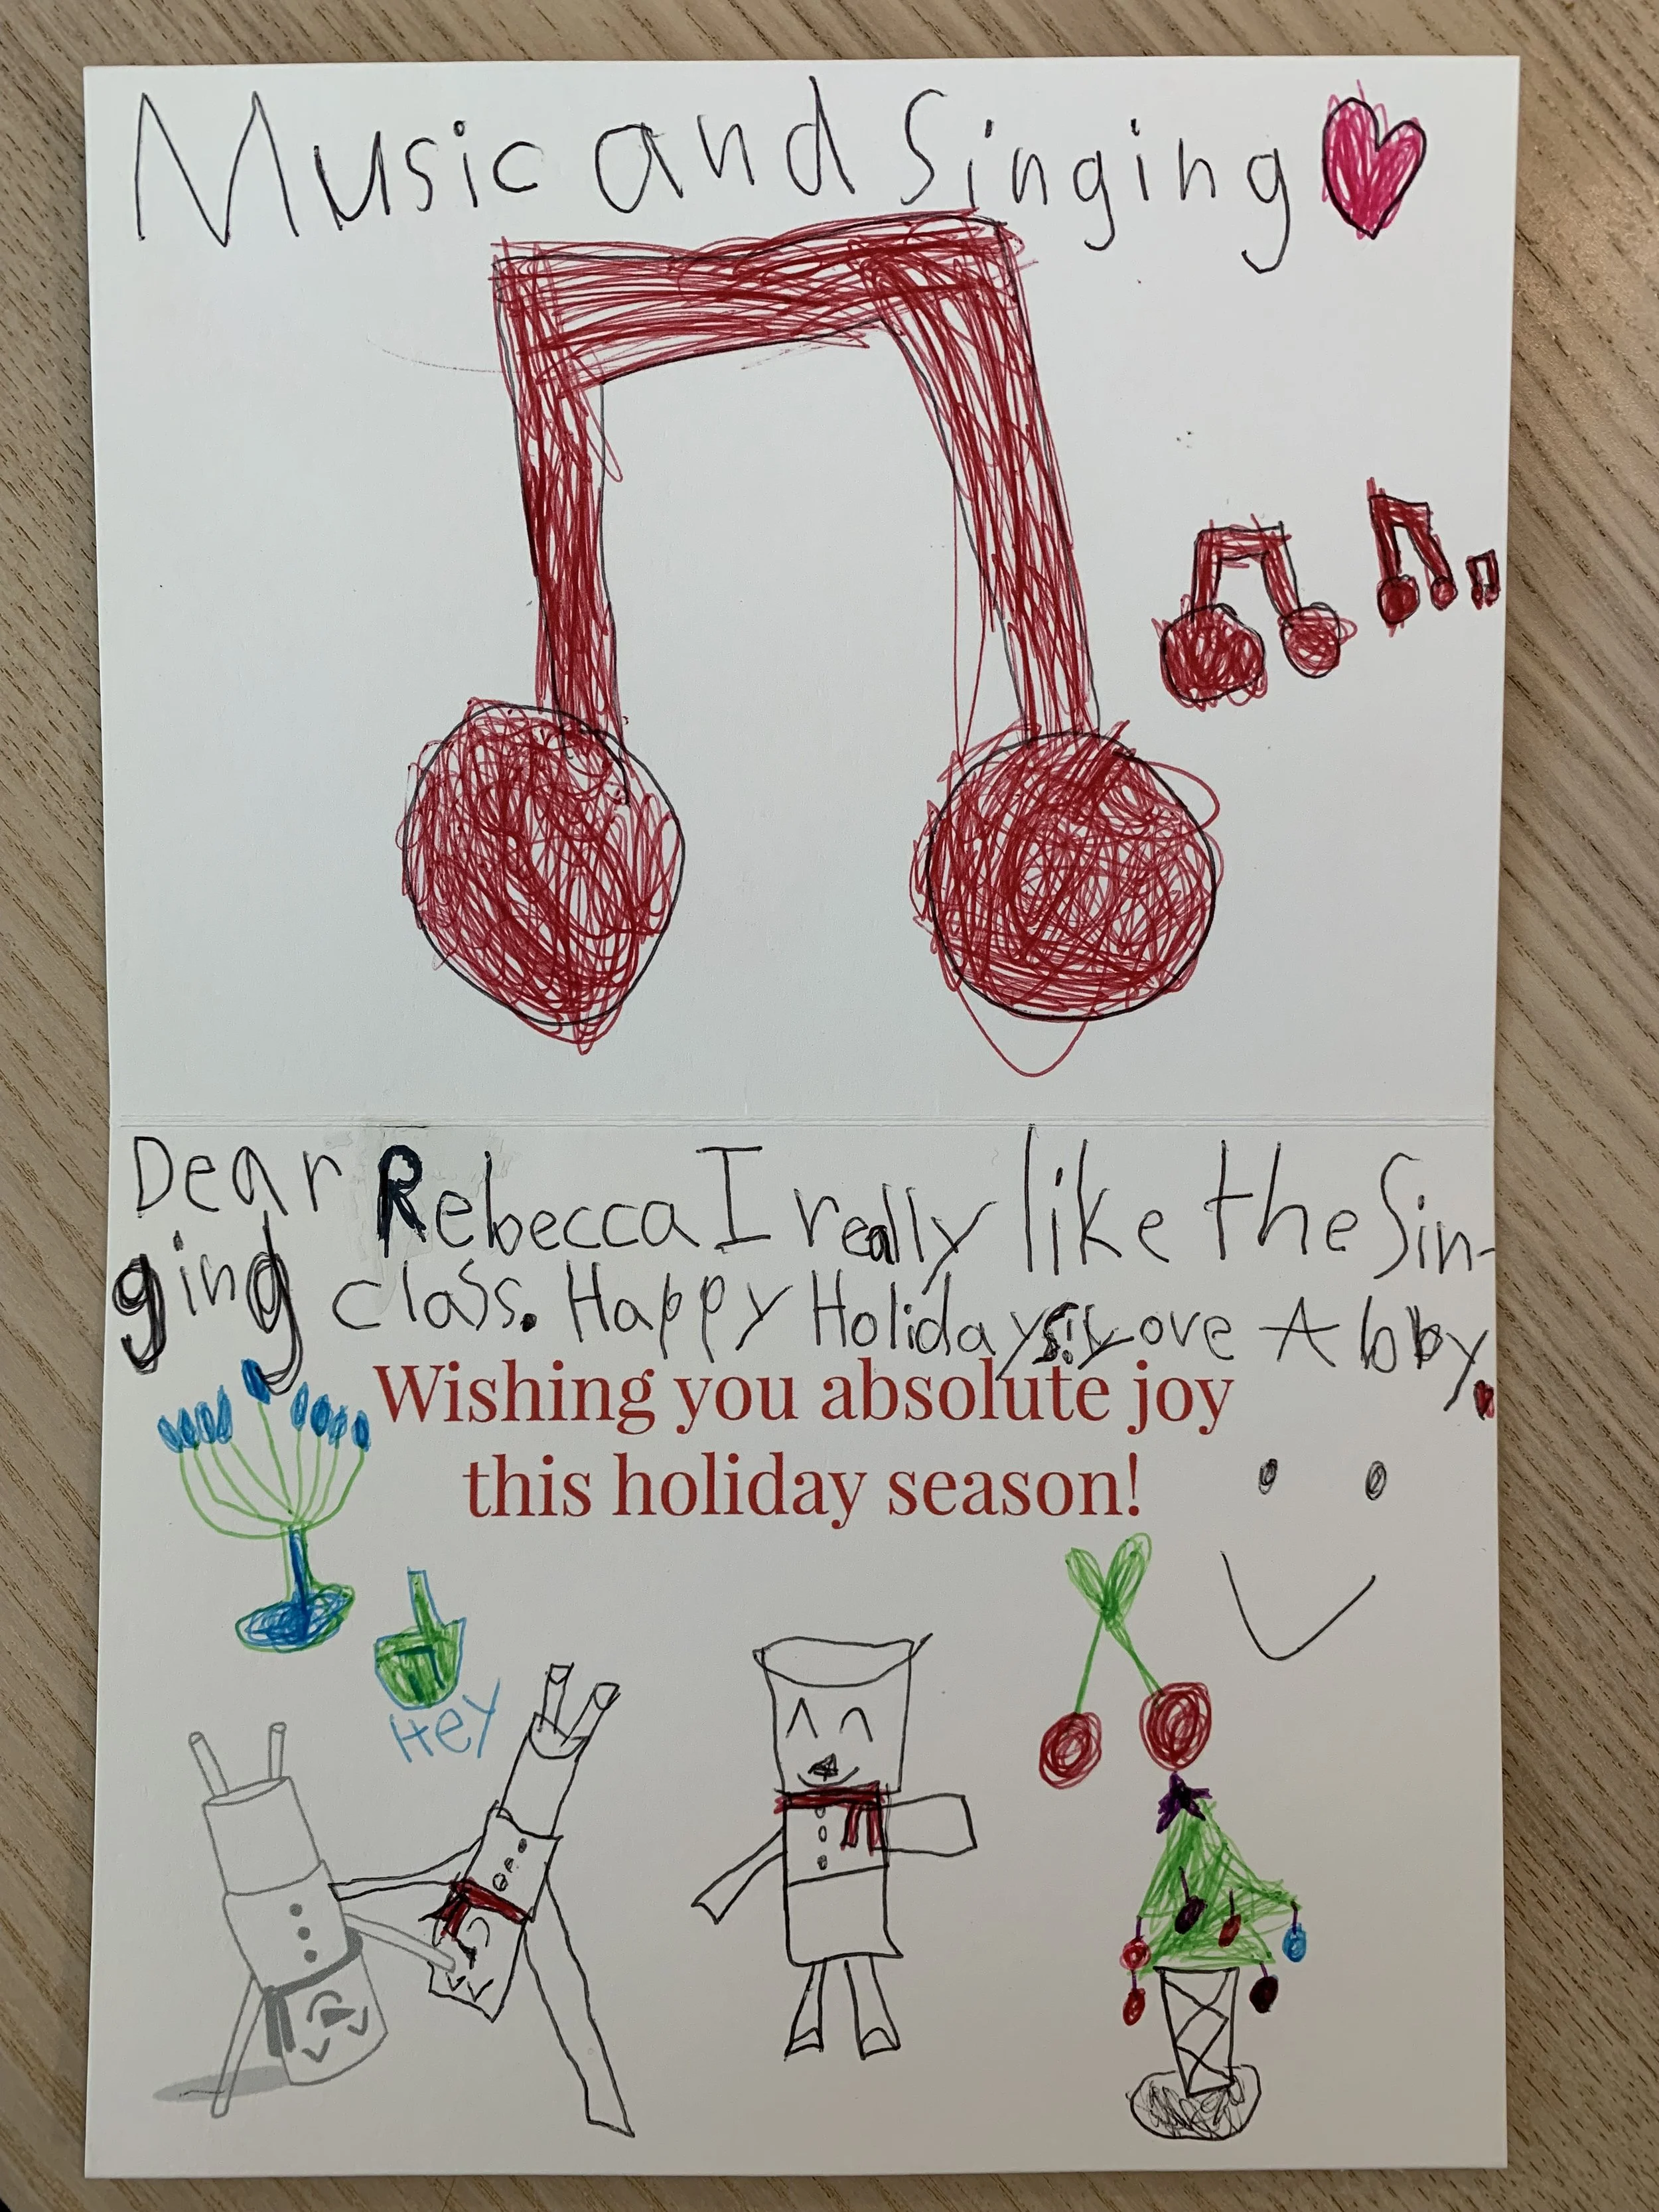 Music and Singing
Dear Rebecca I really like the Sin-
ging class. Happy Holidays! Love Abby
Wishing you absolute joy
this holiday season!
Hey